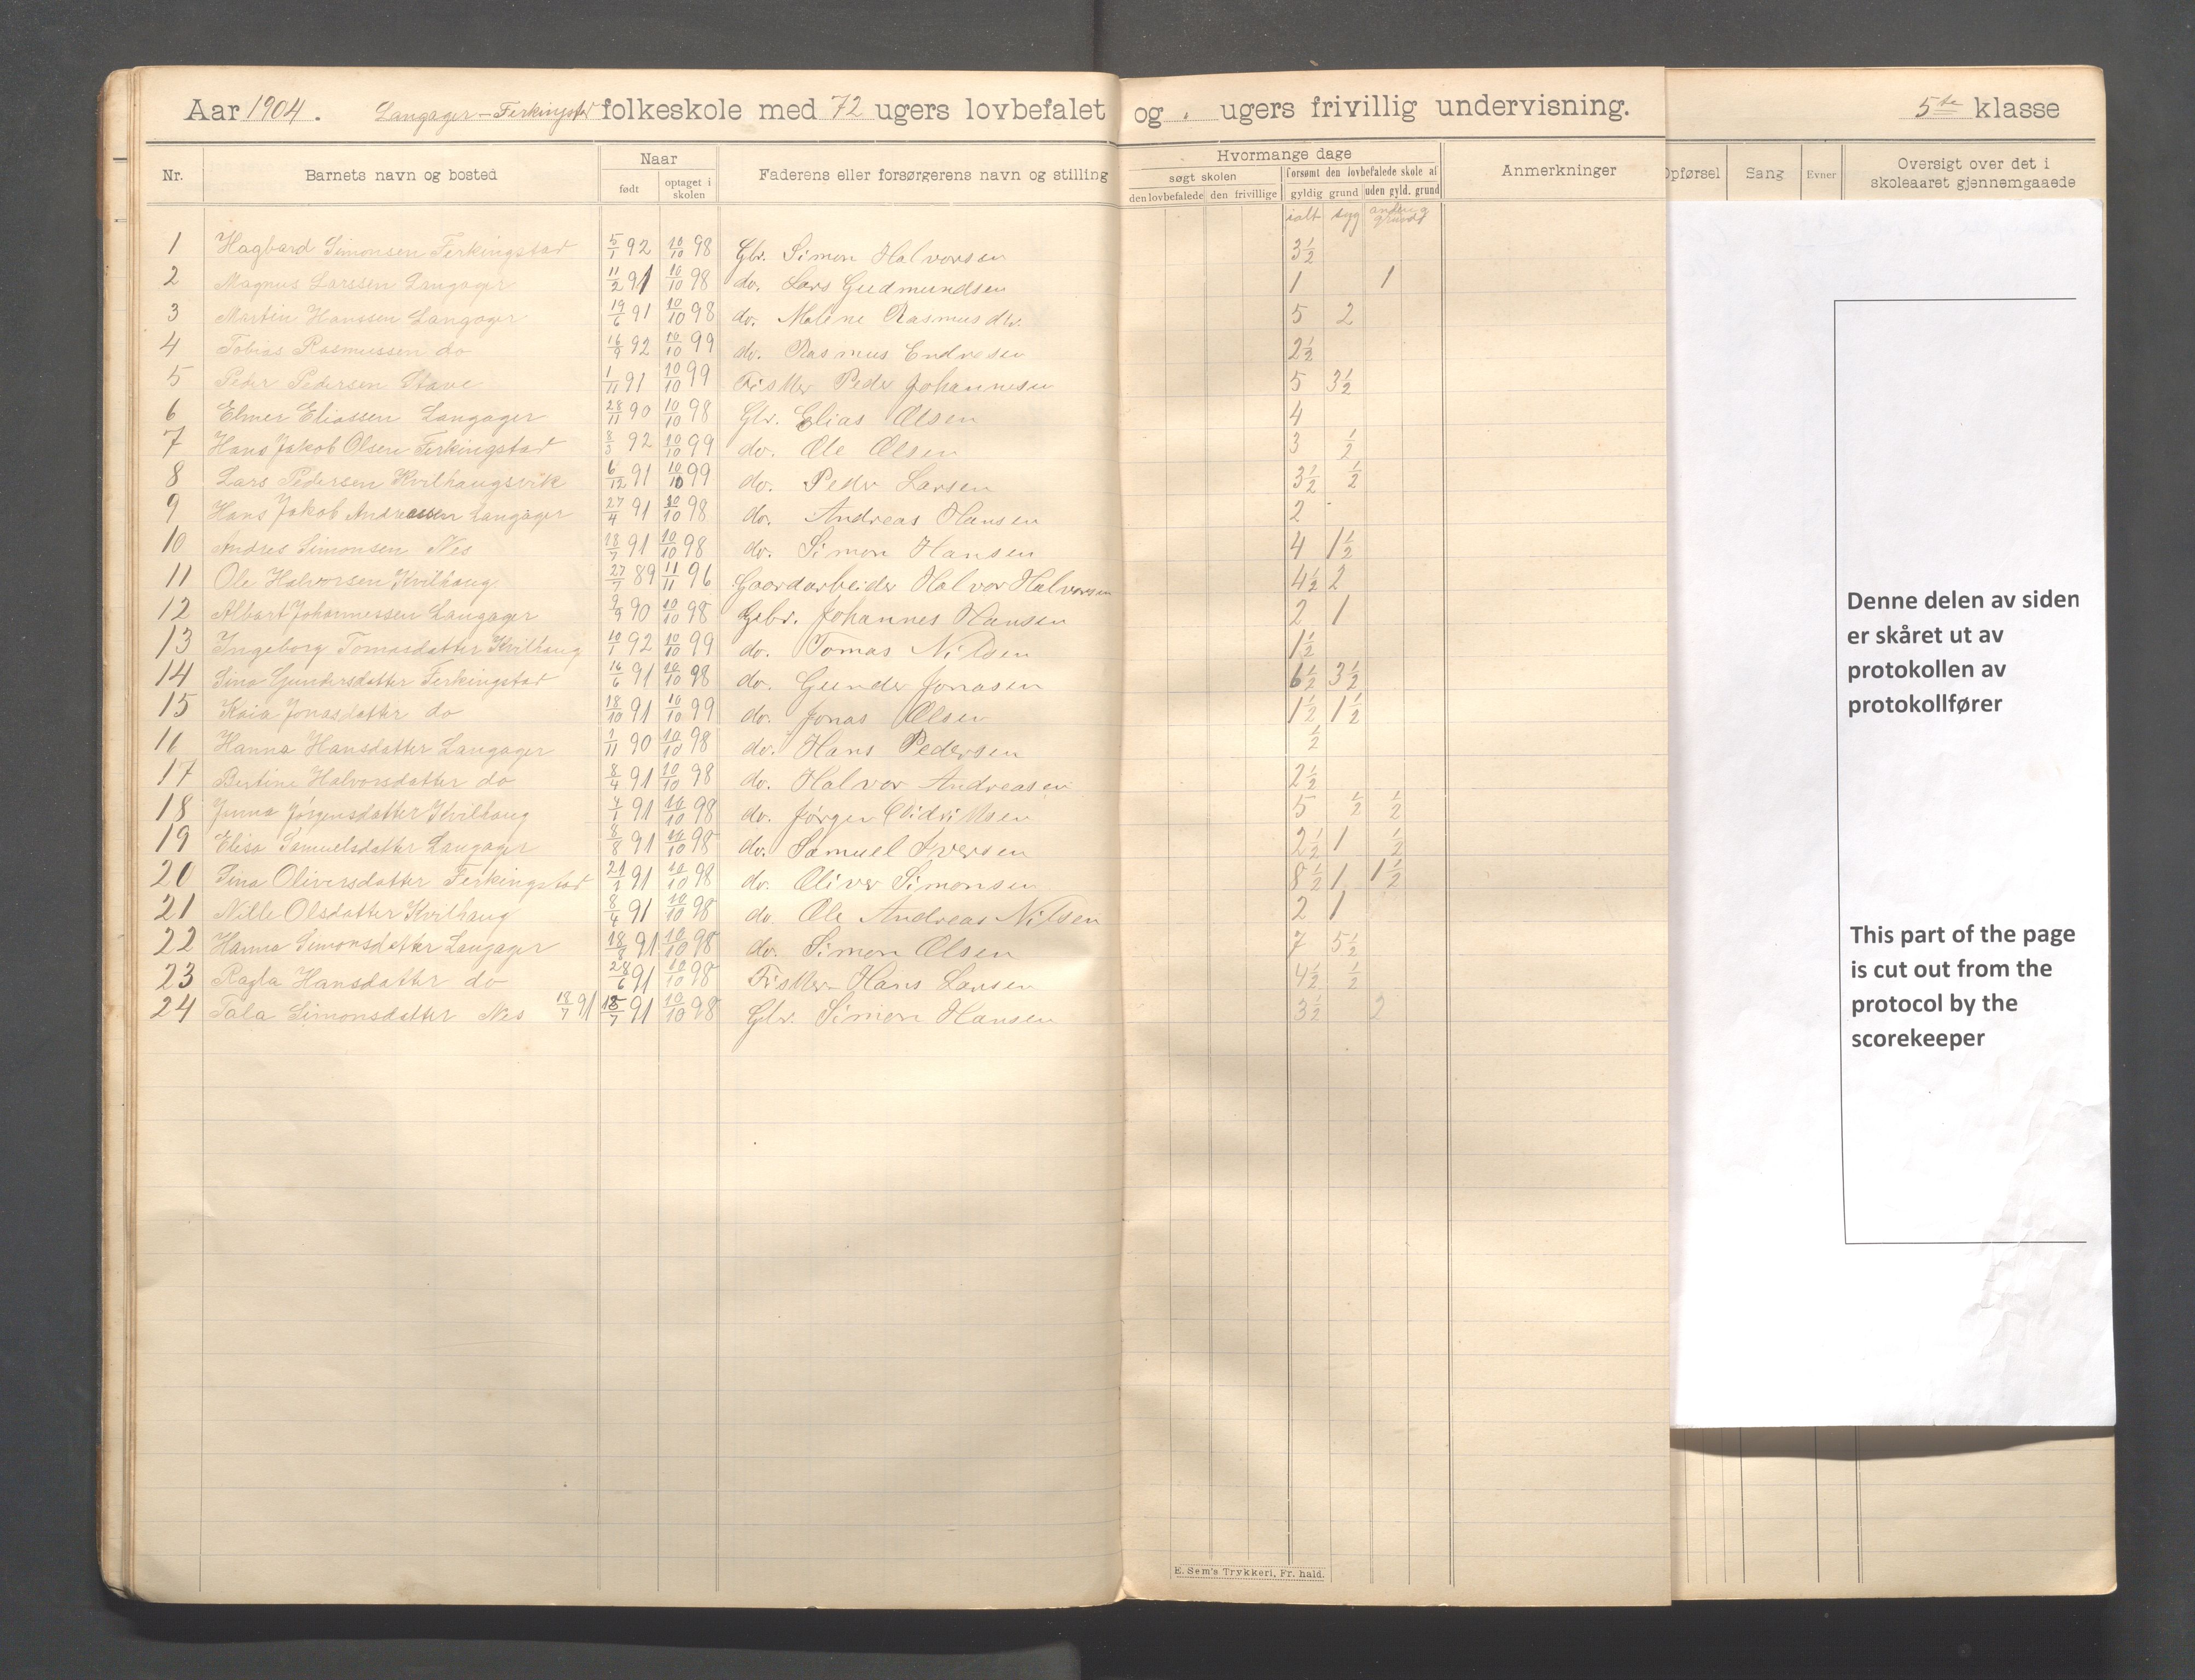 Aar 1904. Langager-Ferkingstad folkeskole med 72 ugers lovbefalet og . ugers frivillig undervisning. 5te klasse
Nr. Barnets navn og bosted Naar født optaget i skolen Faderens eller forsørgerens navn og stilling
Hvormange dage
søgt skolen forsømt den lovbefalede skole af
den lovbefalede den frivillige gyldig grund uden gyld. grund
Anmerkninger
Opførsel Sang Evner Oversigt over det i skoleaaret gjennemgaaede
ialt syg
1 Hagbard Simonsen Ferkingstad 5/1 92 10/10 98 Gbr. Simon Halvorsen 3 1/2
2 Magnus Larssen Langager 11/2 91 10/10 98 do. Lars Gudmundsen 1 1
3 Martin Hanssen Langager 19/6 91 10/10 98 do. Malene Rasmusdtr. 5 2
4 Tobias Rasmussen do 16/9 92 10/10 99 do. Rasmus Endresen 2 1/2
5 Peder Pedersen Stave 1/11 91 10/10 99 Fisker Peder Johannesen 5 3 1/2
6 Elmer Eliassen Langager 28/11 90 10/10 98 Gbr. Elias Olsen 4
7 Hans Jakob Olsen Ferkingstad 8/3 92 10/10 99 do. Ole Olsen 3 1/2
8 Lars Pedersen Kvilhaugsvik 6/12 91 10/10 99 do. Peder Larsen 3 1/2 1/2
9 Hans Jakob Andreassen Langager 27/4 91 10/10 98 do. Andreas Hansen 2
10 Andres Simonsen Nes 18/7 91 10/10 98 do. Simon Hansen 4 1 1/2
11 Ole Halvorsen Kvilhaug 27/7 89 11/11 96 Gaardarbeider Halvor Halvorsen 4 1/2 2
12 Albert Johannessen Langager 9/9 90 10/10 98 Gbr. Johannes Hansen 2 1
13 Ingeborg Tomasdatter Kvilhaug 10/1 92 10/10 99 do. Tomas Nilsen 1 1/2
14 Sina Gundersdatter Ferkingstad 16/6 91 10/10 98 do. Gunder Jonasen 6 1/2 3 1/2
15 Kaia Jonasdatter do 18/10 91 10/10 99 do. Jonas Olsen 1 1/2 1 1/2
16 Hanna Hansdatter Langager 90 10/10 98 do. Hans Pedersen 1/2
17 Bertine Halvorsdatter do 8/4 91 10/10 98 do. Halvor Andreasen 2 1/2
18 Jørgensdatter Kvilhaug 91 10/10 98 do. Jørgen Didriksen 5 1/2 1/2
19 Elisa Samuelsdatter Langager 8/8 91 10/10 98 do. Samuel Iversen 2 1/2 1 1/2
20 Sina Oliversdatter Ferkingstad 91 10/10 98 do. Oliver Simonsen 8 1/2 1 1 1/2
21 Nille Olsdatter Kvilhaug 8/4 91 10/10 98 do Ole Andreas Nilsen 2 1
22 Hanna Simonsdatter Langager 18/8 91 10/10 98 do. Simon Olsen 7 5 1/2
23 Ragla Hansdatter do 28/6 91 10/10 98 Fisker Hans Larsen 4 1/2 1/2
24 Tala Simonsdatter Nes 18/7 91 18/7 91 10/10 98 Gbr. Simon Hansen 3 1/2 2
E. Sem's Trykkeri, Fr. hald.
Denne delen av siden
er skåret ut av
protokollen av
protokollfører
This part of the page
is cut out from the
protocol by the
scorekeeper